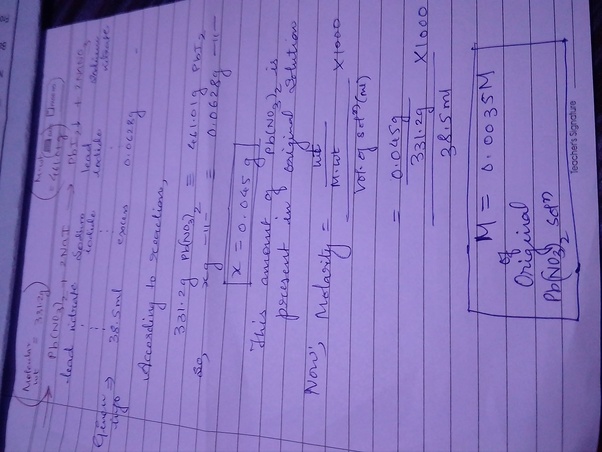 (Molecular wt = 331.2g)
(Mol. = 461.01g)
→ Pb(NO3)2 + 2NaI → PbI2↓ + 2NaNO3
lead nitrate Sodium iodide lead iodide Sodium nitrate
Given → 38.5ml excess 0.0628g
info
According to reaction,
331.2g Pb(NO3)2 ≡ 461.01g PbI2
So, xg —11— ≡ 0.0628g —11—
x = 0.045g
This amount of Pb(NO3)2 is
present in original solution
Now, Molarity = wt / M.wt × 1000
Vol. of solⁿ (ml)
= 0.045g / 331.2g × 1000
38.5ml
M = 0.0035M
of
Original
Pb(NO3)2 solⁿ
Teacher's Signature